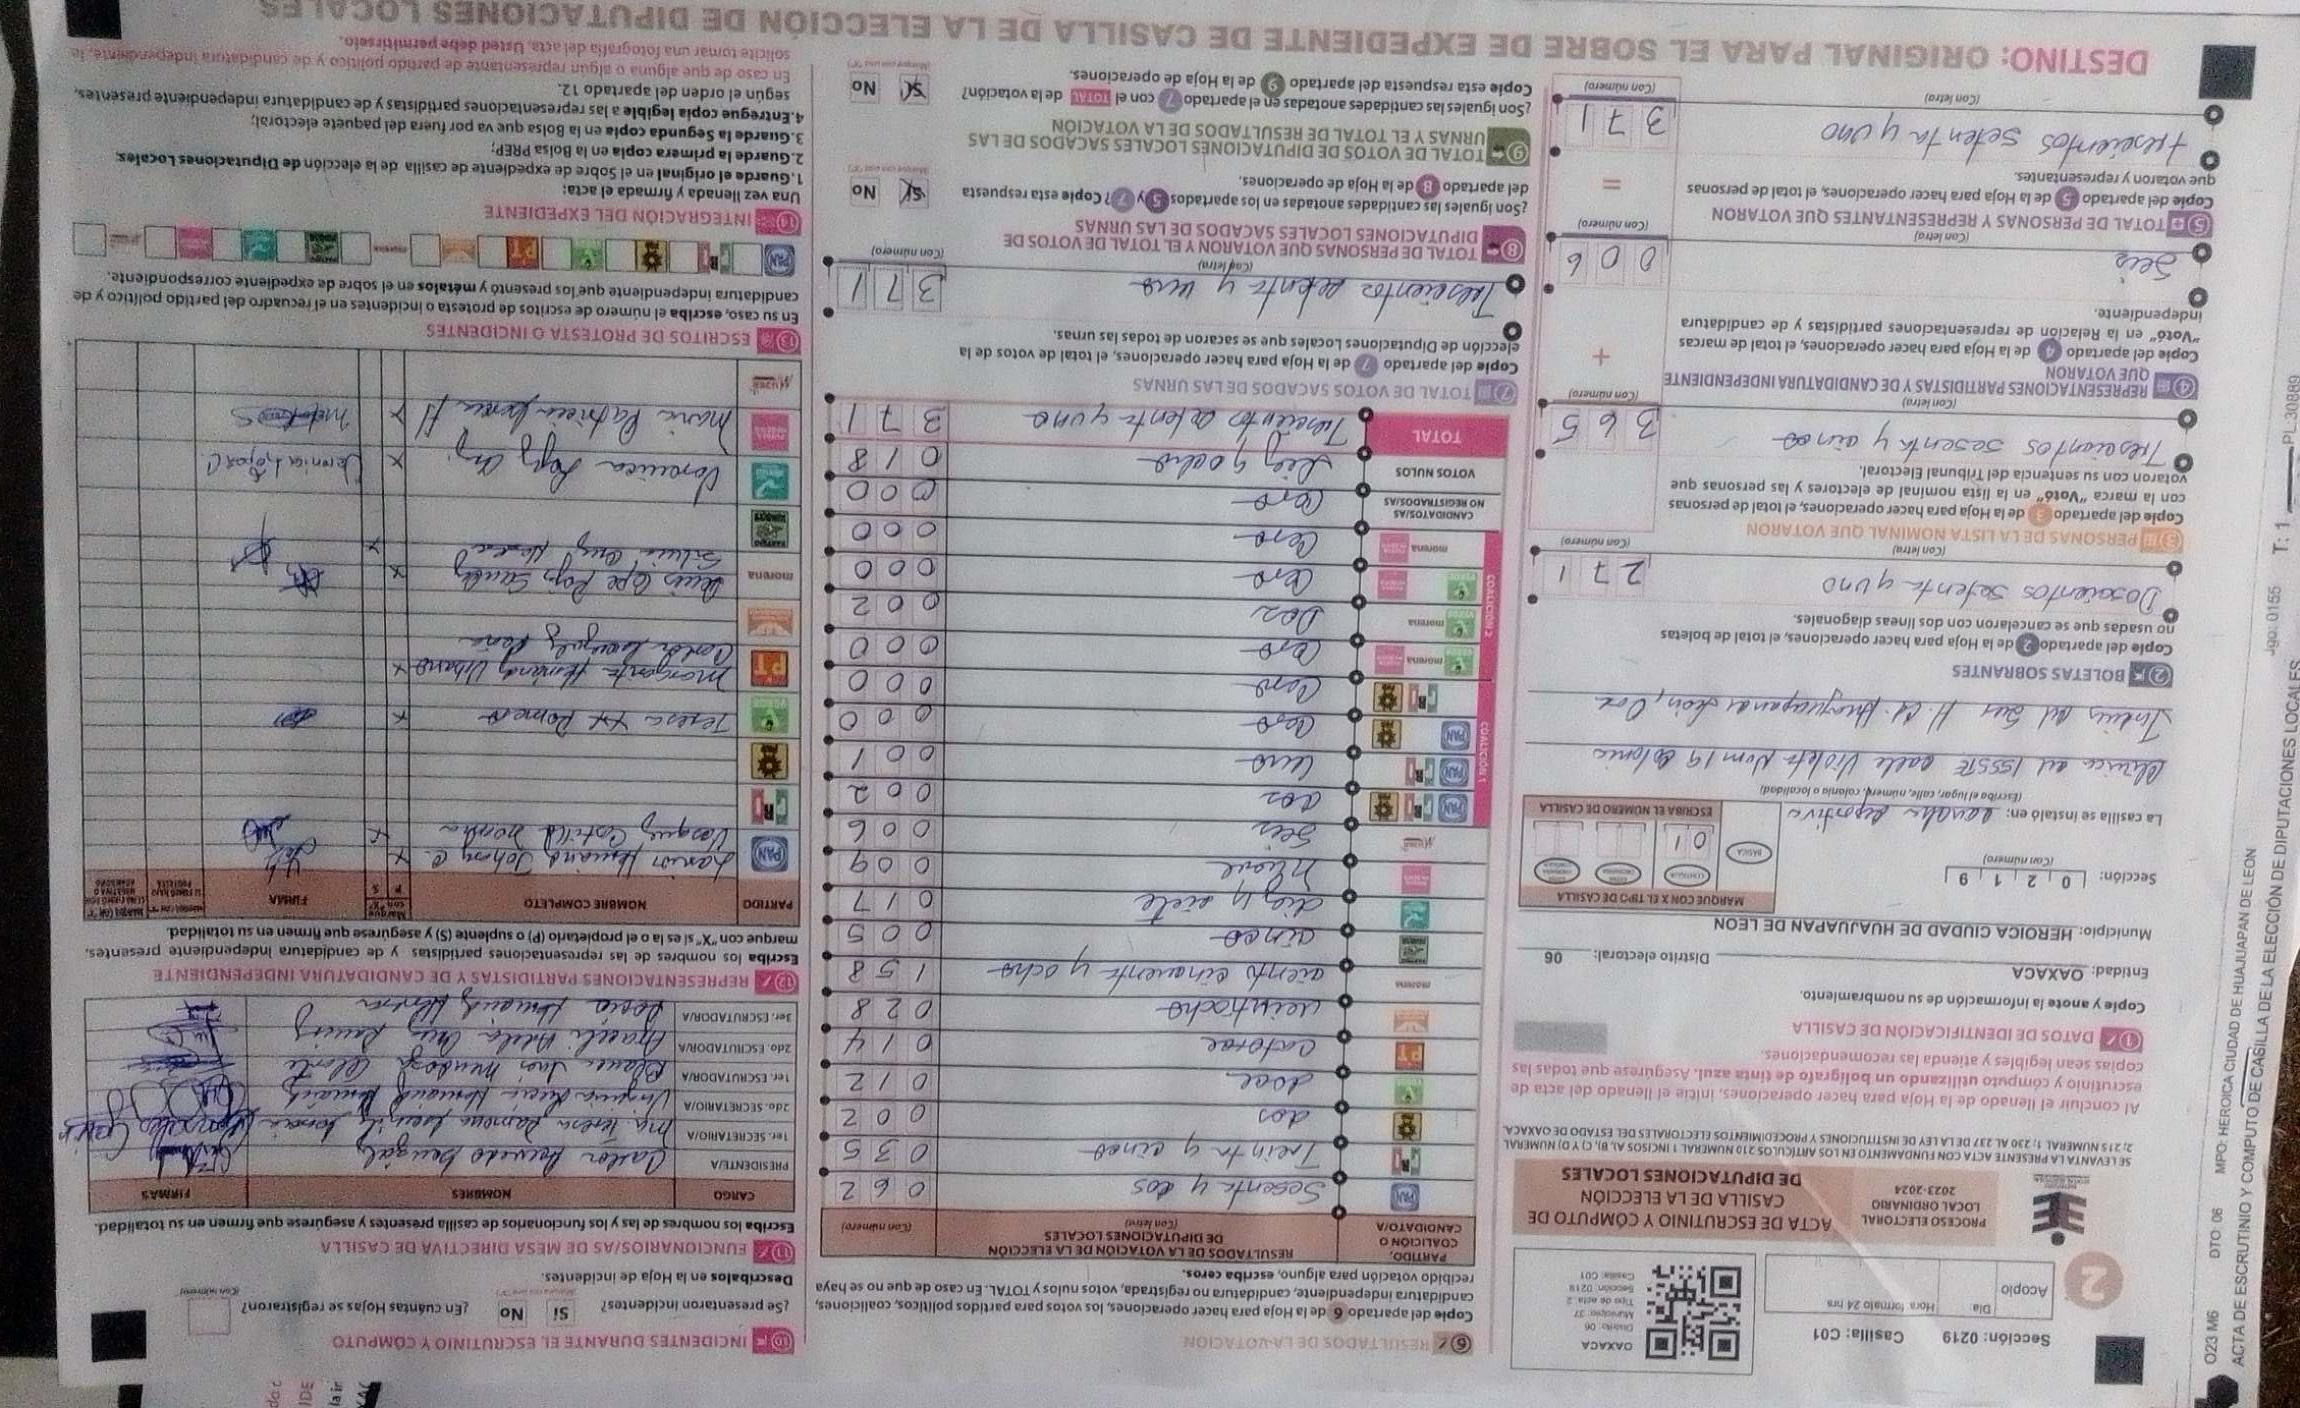 2
Sección: 0219 Casilla: C01
Acopio
Día
Hora formato 24 hrs
OAXACA
Distrito: 06
Municipio: 37
Tipo de acta: 2
Sección: 0219
Casilla: C01
PROCESO ELECTORAL
LOCAL ORDINARIO
2023-2024
ACTA DE ESCRUTINIO Y CÓMPUTO DE
CASILLA DE LA ELECCIÓN
DE DIPUTACIONES LOCALES
SE LEVANTA LA PRESENTE ACTA CON FUNDAMENTO EN LOS ARTÍCULOS 210 NUMERAL 1 INCISOS A), B), C) Y D) NUMERAL
2; 215 NUMERAL 1; 230 AL 237 DE LA LEY DE INSTITUCIONES Y PROCEDIMIENTOS ELECTORALES DEL ESTADO DE OAXACA.
Al concluir el llenado de la Hoja para hacer operaciones, inicie el llenado del acta de
escrutinio y cómputo utilizando un bolígrafo de tinta azul. Asegúrese que todas las
copias sean legibles y atienda las recomendaciones.
1 DATOS DE IDENTIFICACIÓN DE CASILLA
Copie y anote la información de su nombramiento.
Entidad: OAXACA Distrito electoral: 06
Municipio: HEROICA CIUDAD DE HUAJUAPAN DE LEON
Sección: 0 2 1 9
(Con número)
MARQUE CON X EL TIPO DE CASILLA
BÁSICA
CONTIGUA
01
ESCRIBA EL NÚMERO DE CASILLA
La casilla se instaló en: cancha deportiva
(Escriba el lugar, calle, número, colonia o localidad)
Clinica del ISSSTE calle Violeta Num 19 Colonia
Jardines del Sur H. Cd. Huajuapan de León, Oax
2 BOLETAS SOBRANTES
Copie del apartado 2 de la Hoja para hacer operaciones, el total de boletas
no usadas que se cancelaron con dos líneas diagonales.
Doscientos setenta y uno 2 7 1
(Con letra) (Con número)
3 PERSONAS DE LA LISTA NOMINAL QUE VOTARON
Copie del apartado 3 de la Hoja para hacer operaciones, el total de personas
con la marca "Votó" en la lista nominal de electores y las personas que
votaron con su sentencia del Tribunal Electoral.
Trescientos sesenta y cinco 3 6 5
(Con letra) (Con número)
4 REPRESENTACIONES PARTIDISTAS Y DE CANDIDATURA INDEPENDIENTE
QUE VOTARON
Copie del apartado 4 de la Hoja para hacer operaciones, el total de marcas
"Votó" en la Relación de representaciones partidistas y de candidatura
independiente.
+
Seis 0 0 6
(Con letra) (Con número)
5 TOTAL DE PERSONAS Y REPRESENTANTES QUE VOTARON
Copie del apartado 5 de la Hoja para hacer operaciones, el total de personas
que votaron y representantes.
=
trescientos setenta y uno 3 7 1
(Con letra) (Con número)
6 RESULTADOS DE LA VOTACIÓN
Copie del apartado 6 de la Hoja para hacer operaciones, los votos para partidos políticos, coaliciones,
candidatura independiente, candidatura no registrada, votos nulos y TOTAL. En caso de que no se haya
recibido votación para alguno, escriba ceros.
PARTIDO, COALICIÓN O CANDIDATO/A
RESULTADOS DE LA VOTACIÓN DE LA ELECCIÓN DE DIPUTACIONES LOCALES
(Con letra) (Con número)
PAN Sesenta y dos 0 6 2
PRI Treinta y cinco 0 3 5
dos 0 0 2
VERDE doce 0 1 2
PT catorce 0 1 4
veintiocho 0 2 8
morena ciento cincuenta y ocho 1 5 8
cinco 0 0 5
diez y siete 0 1 7
Nueve 0 0 9
MUJER Seis 0 0 6
COALICIÓN 1
PAN PRI dos 0 0 2
PAN PRI Uno 0 0 1
PAN Cero 0 0 0
PRI Cero 0 0 0
COALICIÓN 2
VERDE morena Cero 0 0 0
VERDE morena Dos 0 0 2
VERDE Cero 0 0 0
morena Cero 0 0 0
CANDIDATOS/AS NO REGISTRADOS/AS Cero 0 0 0
VOTOS NULOS Diez y ocho 0 1 8
TOTAL Trescientos setenta y uno 3 7 1
7 TOTAL DE VOTOS SACADOS DE LAS URNAS
Copie del apartado 7 de la Hoja para hacer operaciones, el total de votos de la
elección de Diputaciones Locales que se sacaron de todas las urnas.
Trescientos setenta y uno 3 7 1
(Con letra) (Con número)
8 TOTAL DE PERSONAS QUE VOTARON Y EL TOTAL DE VOTOS DE
DIPUTACIONES LOCALES SACADOS DE LAS URNAS
¿Son iguales las cantidades anotadas en los apartados 5 y 7? Copie esta respuesta
del apartado 8 de la Hoja de operaciones.
Sí No
9 TOTAL DE VOTOS DE DIPUTACIONES LOCALES SACADOS DE LAS
URNAS Y EL TOTAL DE RESULTADOS DE LA VOTACIÓN
¿Son iguales las cantidades anotadas en el apartado 7 con el TOTAL de la votación?
Copie esta respuesta del apartado 9 de la Hoja de operaciones.
Sí No
10 INCIDENTES DURANTE EL ESCRUTINIO Y CÓMPUTO
¿Se presentaron incidentes? Sí No ¿En cuántas Hojas se registraron?
(Con número)
Descríbalos en la Hoja de incidentes.
11 FUNCIONARIOS/AS DE MESA DIRECTIVA DE CASILLA
Escriba los nombres de las y los funcionarios de casilla presentes y asegúrese que firmen en su totalidad.
CARGO NOMBRES FIRMAS
PRESIDENTE/A Carlos Acevedo
1er. SECRETARIO/A Ma. Teresa Ramona
2do. SECRETARIO/A Virginia
1er. ESCRUTADOR/A Blanca Inés Mendoza
2do. ESCRUTADOR/A Araceli Adela Cruz Ramirez
3er. ESCRUTADOR/A Rocio
12 REPRESENTACIONES PARTIDISTAS Y DE CANDIDATURA INDEPENDIENTE
Escriba los nombres de las representaciones partidistas y de candidatura independiente presentes,
marque con "X" si es la o el propietario (P) o suplente (S) y asegúrese que firmen en su totalidad.
PARTIDO NOMBRE COMPLETO Marque con "X" P S FIRMA
PAN Johny C. X
Vasquez Castillo X
PRI
VERDE Teresa Romero X
PT Margarita Urbano X
Carlos
morena Luis X
Silvia Cruz X
Veronica X
Maria Patricia X
MUJER
13 ESCRITOS DE PROTESTA O INCIDENTES
En su caso, escriba el número de escritos de protesta o incidentes en el recuadro del partido político y de
candidatura independiente que los presentó y métalos en el sobre de expediente correspondiente.
PAN PRI VERDE PT morena
14 INTEGRACIÓN DEL EXPEDIENTE
Una vez llenada y firmada el acta:
1.Guarde el original en el Sobre de expediente de casilla de la elección de Diputaciones Locales;
2.Guarde la primera copia en la Bolsa PREP;
3.Guarde la Segunda copia en la Bolsa que va por fuera del paquete electoral;
4.Entregue copia legible a las representaciones partidistas y de candidatura independiente presentes,
según el orden del apartado 12.
En caso de que alguna o algún representante de partido político y de candidatura independiente, le
solicite tomar una fotografía del acta, Usted debe permitírselo.
DESTINO: ORIGINAL PARA EL SOBRE DE EXPEDIENTE DE CASILLA DE LA ELECCIÓN DE DIPUTACIONES LOCALES
O23 M6 DTO: 06 MPO: HEROICA CIUDAD DE HUAJUAPAN DE LEON Jgo: 0155 T: 1 PL30889
ACTA DE ESCRUTINIO Y CÓMPUTO DE CASILLA DE LA ELECCIÓN DE DIPUTACIONES LOCALES